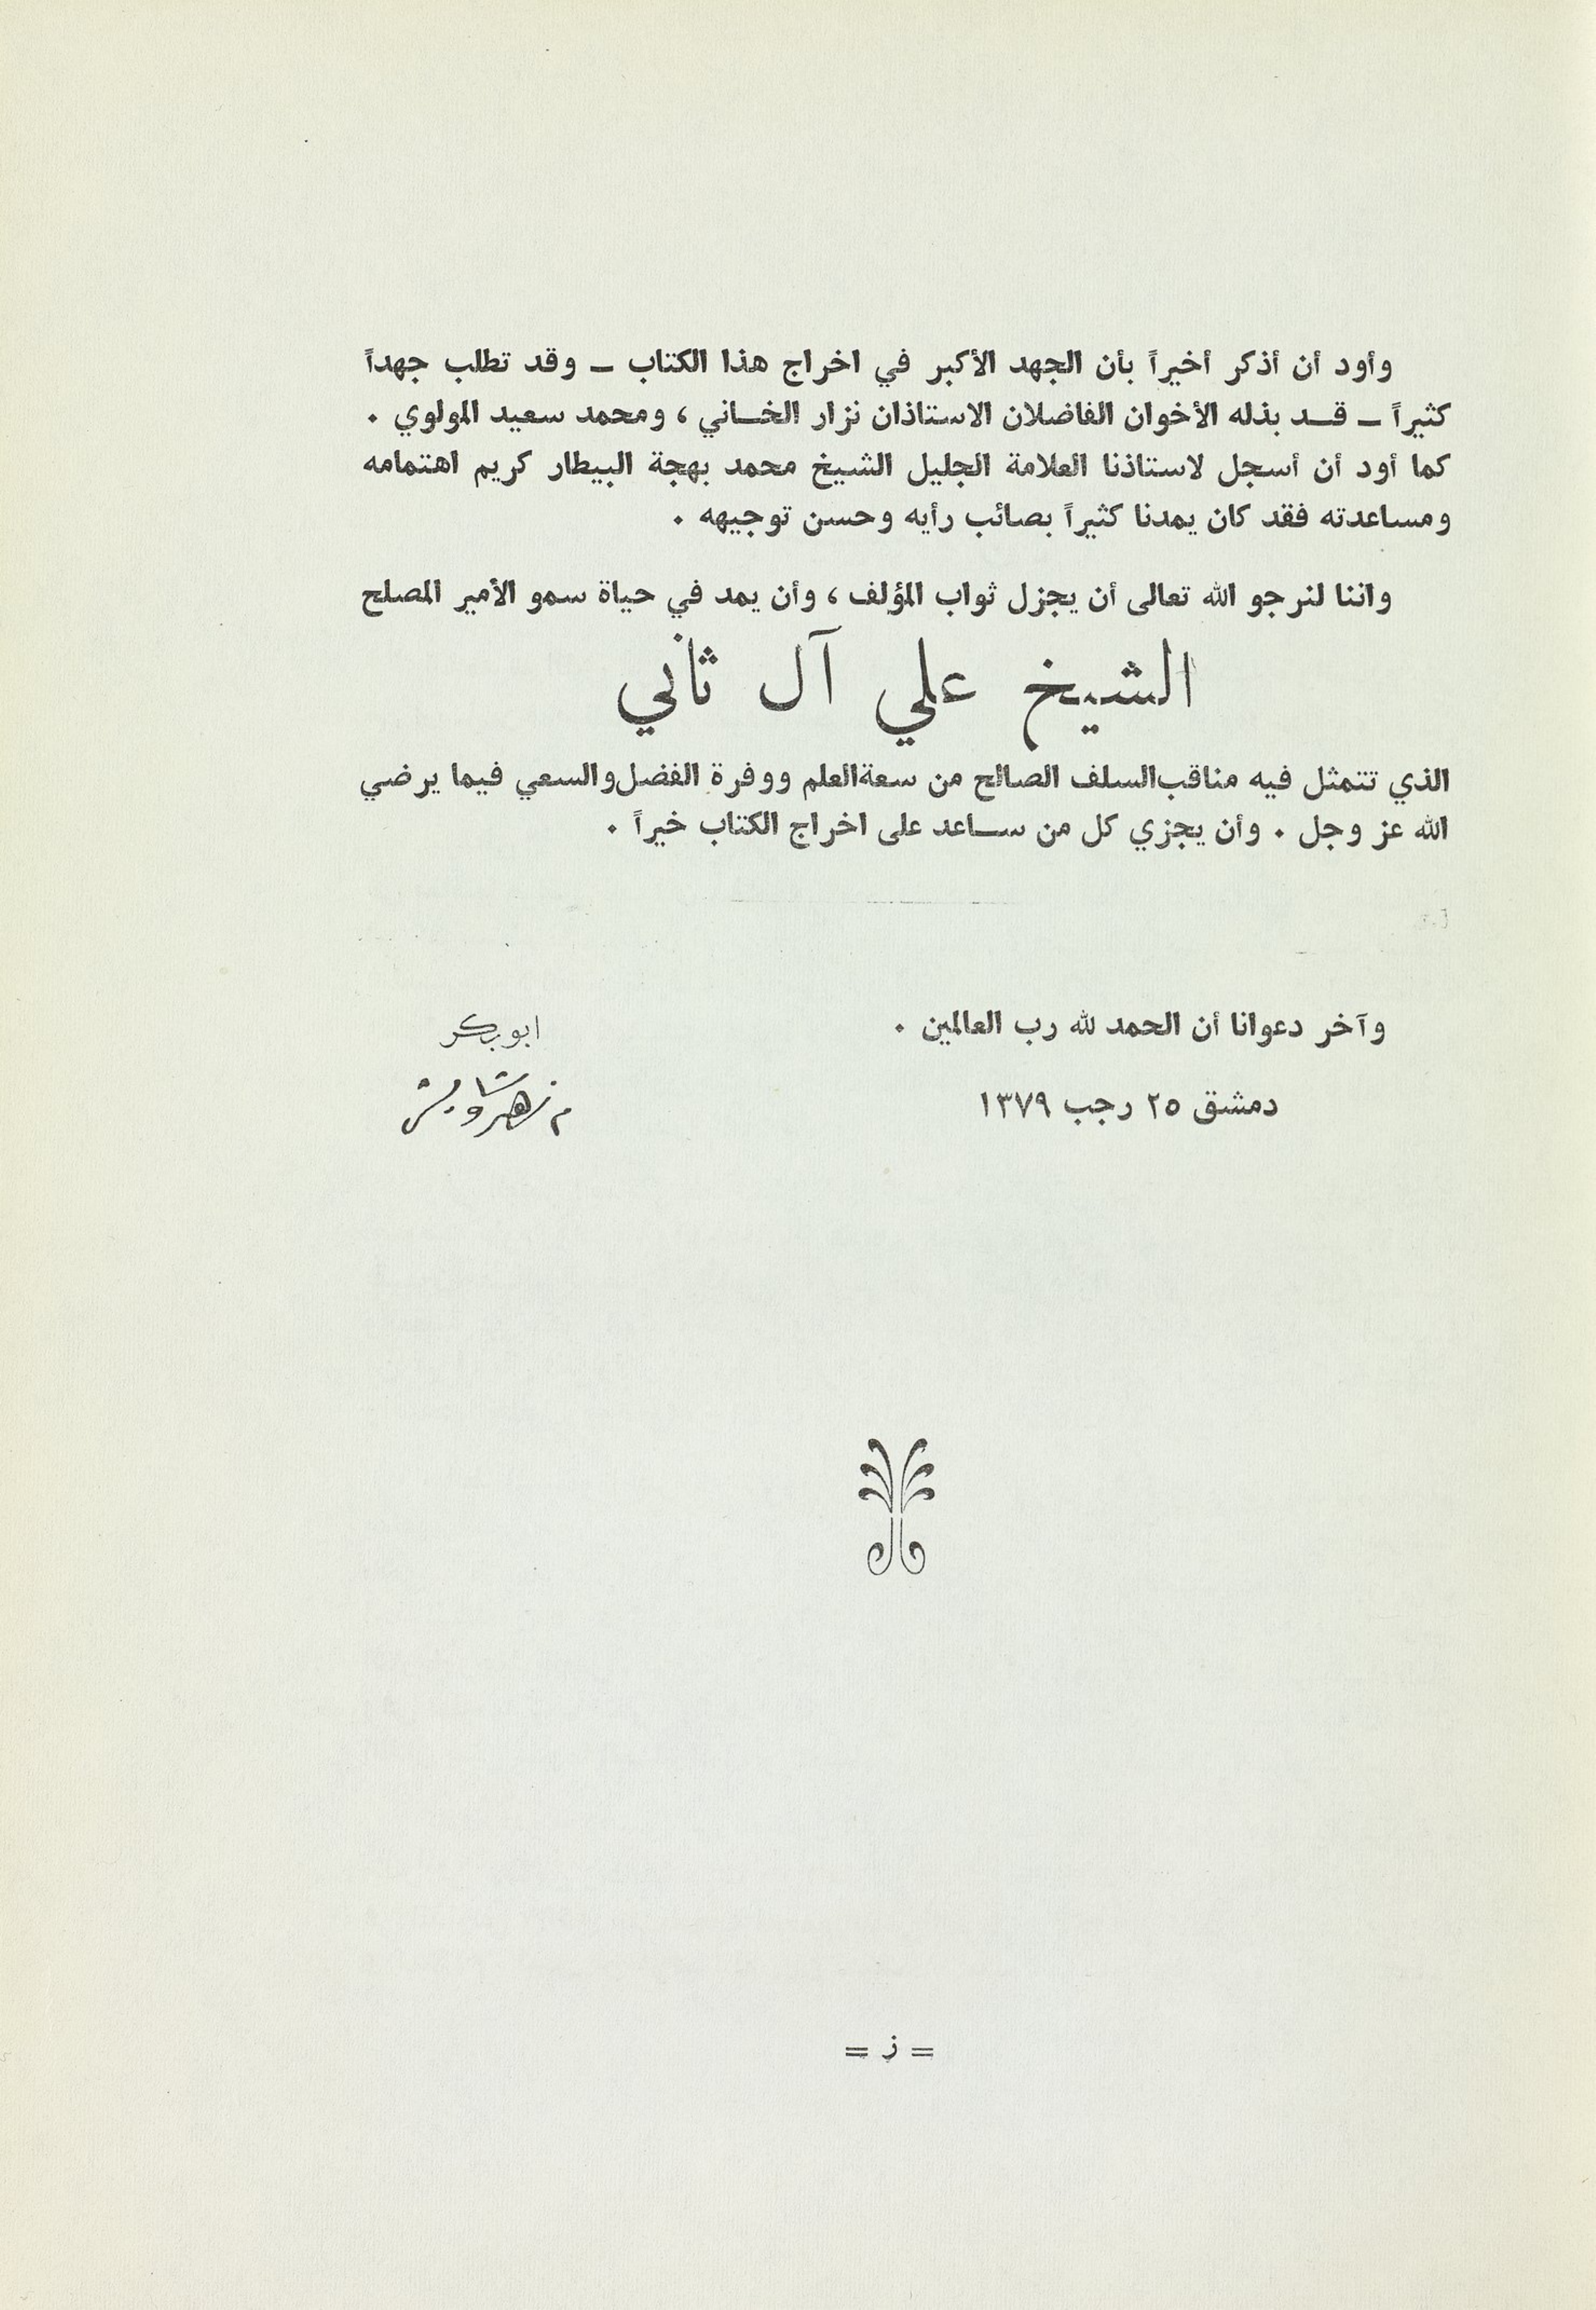 وأود أن أذكر أخيراً بأن الجهد الأكبر في اخراج هذا الكتاب ــ وقد تطلب جهداً
كثيراً ــ قـد بذله الأخوان الفاضلان الاستاذان نزار الخـاني ، ومحمد سعيد المولوي .
كما أود أن أسجل لاستاذنا العلامة الجليل الشيخ محمد بهجة البيطار كريم اهتمامه
ومساعدته فقد كان يمدنا كثيراً بصائب رأيه وحسن توجيهه .
واننا لنرجو الله تعالى أن يجزل ثواب المؤلف ، وأن يمد في حياة سمو الأمير المصلح
الشيخ علي آل ثاني
الذي تتمثل فيه مناقب السلف الصالح من سعة العلم ووفرة الفضل والسعي فيما يرضي
الله عز وجل . وأن يجزي كل من سـاعد على اخراج الكتاب خيراً .
وآخر دعوانا أن الحمد لله رب العالمين .
ابو بكر
دمشق ٢٥ رجب ١٣٧٩
م زهير شاويش
= ز =